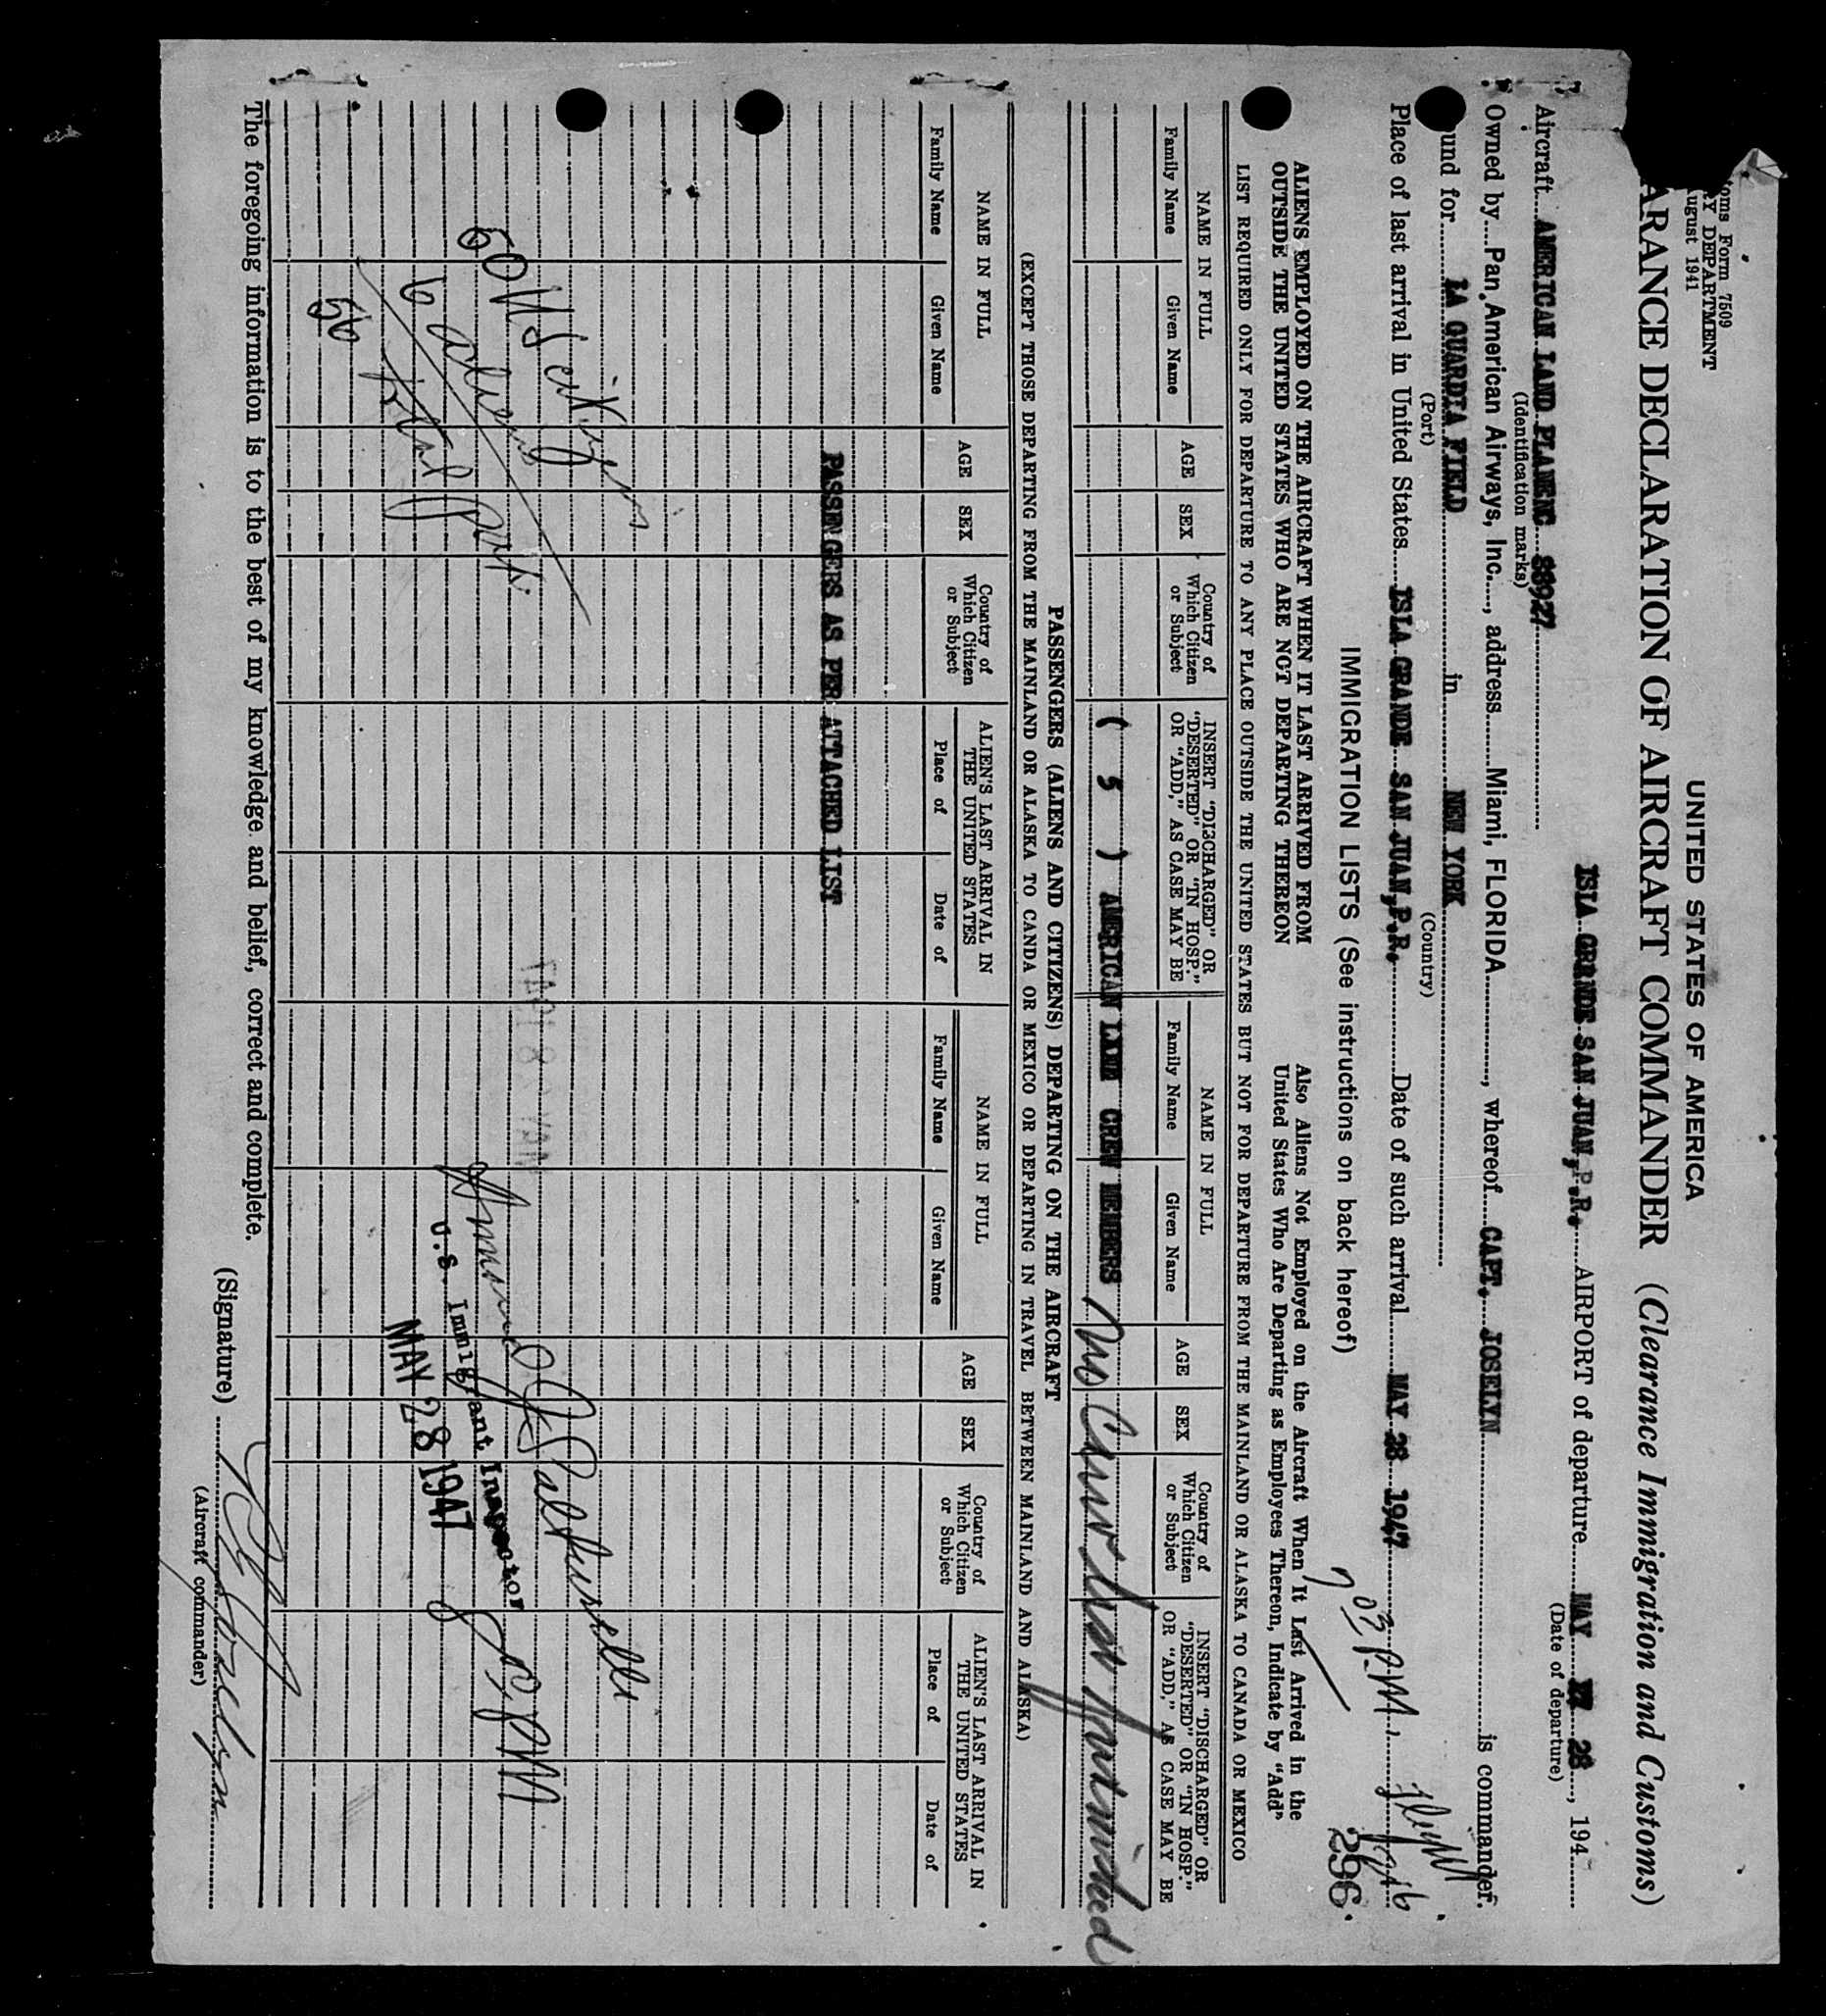 UNITED STATES OF AMERICA
toms Form 7509
Y DEPARTMENT
ugust 1941
ARANCE DECLARATION OF AIRCRAFT COMMANDER (Clearance Immigration and Customs)
ISLA GRANDE SAN JUAN, P.R. AIRPORT of departure MAY 28, 194
(Date of departure)
Aircraft AMERICAN LAND PLANE NC 88927
(Identification marks)
Owned by Pan American Airways, Inc., address Miami, FLORIDA, whereof CAPT. JOSELYN is commander.
und for LA GUARDIA FIELD in NEW YORK
(Port) (Country)
Place of last arrival in United States ISLA GRANDE SAN JUAN, P.R. Date of such arrival MAY 28 1947
703 P.M.
296
IMMIGRATION LISTS (See instructions on back hereof)
ALIENS EMPLOYED ON THE AIRCRAFT WHEN IT LAST ARRIVED FROM
OUTSIDE THE UNITED STATES WHO ARE NOT DEPARTING THEREON
Also Aliens Not Employed on the Aircraft When It Last Arrived in the
United States Who Are Departing as Employees Thereon, Indicate by "Add"
LIST REQUIRED ONLY FOR DEPARTURE TO ANY PLACE OUTSIDE THE UNITED STATES BUT NOT FOR DEPARTURE FROM THE MAINLAND OR ALASKA TO CANADA OR MEXICO
NAME IN FULL
Family Name Given Name
AGE
SEX
Country of Which Citizen or Subject
INSERT "DISCHARGED" OR "DESERTED" OR "IN HOSP." OR "ADD," AS CASE MAY BE
NAME IN FULL
Family Name Given Name
AGE
SEX
Country of Which Citizen or Subject
INSERT "DISCHARGED" OR "DESERTED" OR "IN HOSP." OR "ADD," AS CASE MAY BE
( 5 ) AMERICAN LAND CREW MEMBERS No Crew list furnished
PASSENGERS (ALIENS AND CITIZENS) DEPARTING ON THE AIRCRAFT
(EXCEPT THOSE DEPARTING FROM THE MAINLAND OR ALASKA TO CANDA OR MEXICO OR DEPARTING IN TRAVEL BETWEEN MAINLAND AND ALASKA)
NAME IN FULL
Family Name Given Name
AGE
SEX
Country of Which Citizen or Subject
ALIEN'S LAST ARRIVAL IN THE UNITED STATES
Place of Date of
NAME IN FULL
Family Name Given Name
AGE
SEX
Country of Which Citizen or Subject
ALIEN'S LAST ARRIVAL IN THE UNITED STATES
Place of Date of
PASSENGERS AS PER ATTACHED LIST
50 US Citizens
6 aliens
56 total
U.S. Immigrant Inspector
MAY 28 1947
8 P.M
The foregoing information is to the best of my knowledge and belief, correct and complete.
(Signature)
(Aircraft commander)